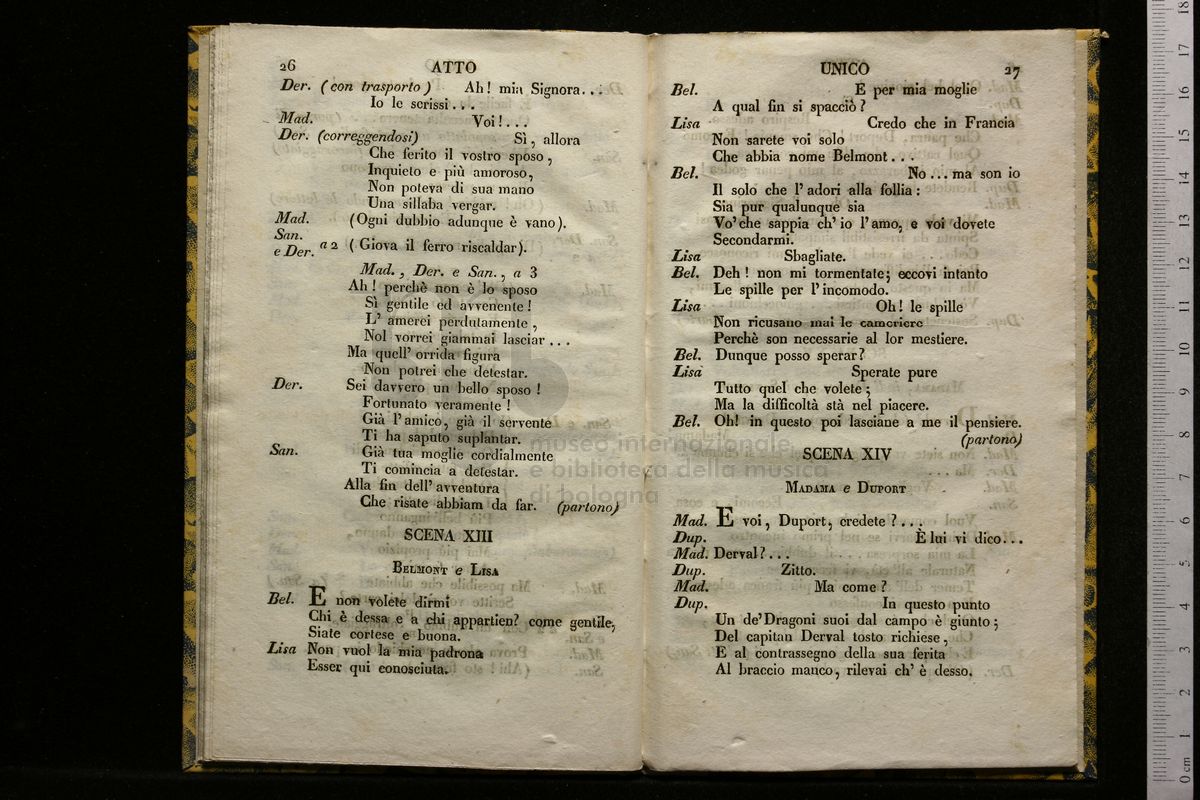 26 ATTO
Der. (con trasporto) Ah! mia Signora...
Io le scrissi...
Mad. Voi!...
Der. (correggendosi) Sì, allora
Che ferito il vostro sposo,
Inquieto e più amoroso,
Non poteva di sua mano
Una sillaba vergar.
Mad. (Ogni dubbio adunque è vano).
San.
e Der. a 2 (Giova il ferro riscaldar).
Mad., Der. e San., a 3
Ah! perchè non è lo sposo
Sì gentile ed avvenente!
L' amerei perdutamente,
Nol vorrei giammai lasciar...
Ma quell' orrida figura
Non potrei che detestar.
Der. Sei davvero un bello sposo!
Fortunato veramente!
Già l'amico, già il servente
Ti ha saputo suplantar.
San. Già tua moglie cordialmente
Ti comincia a detestar.
Alla fin dell' avventura
Che risate abbiam da far. (partono)
SCENA XIII
BELMONT e LISA
Bel. E non volete dirmi
Chi è dessa e a chi appartien? come gentile,
Siate cortese e buona.
Lisa Non vuol la mia padrona
Esser qui conosciuta.
UNICO 27
Bel. E per mia moglie
A qual fin si spacciò?
Lisa Credo che in Francia
Non sarete voi solo
Che abbia nome Belmont...
Bel. No... ma son io
Il solo che l' adori alla follia:
Sia pur qualunque sia
Vo' che sappia ch' io l'amo, e voi dovete
Secondarmi.
Lisa Sbagliate.
Bel. Deh! non mi tormentate; eccovi intanto
Le spille per l' incomodo.
Lisa Oh! le spille
Non ricusano mai le cameriere
Perchè son necessarie al lor mestiere.
Bel. Dunque posso sperar?
Lisa Sperate pure
Tutto quel che volete;
Ma la difficoltà stà nel piacere.
Bel. Oh! in questo poi lasciane a me il pensiere.
(partono)
SCENA XIV
MADAMA e DUPORT
Mad. E voi, Duport, credete?...
Dup. È lui vi dico...
Mad. Derval?...
Dup. Zitto.
Mad. Ma come?
Dup. In questo punto
Un de' Dragoni suoi dal campo è giunto;
Del capitan Derval tosto richiese,
E al contrassegno della sua ferita
Al braccio manco, rilevai ch' è desso.
museo internazionale
e biblioteca della musica
di bologna
18
17
16
15
14
13
12
11
10
9
8
7
6
5
4
3
2
1
0 cm